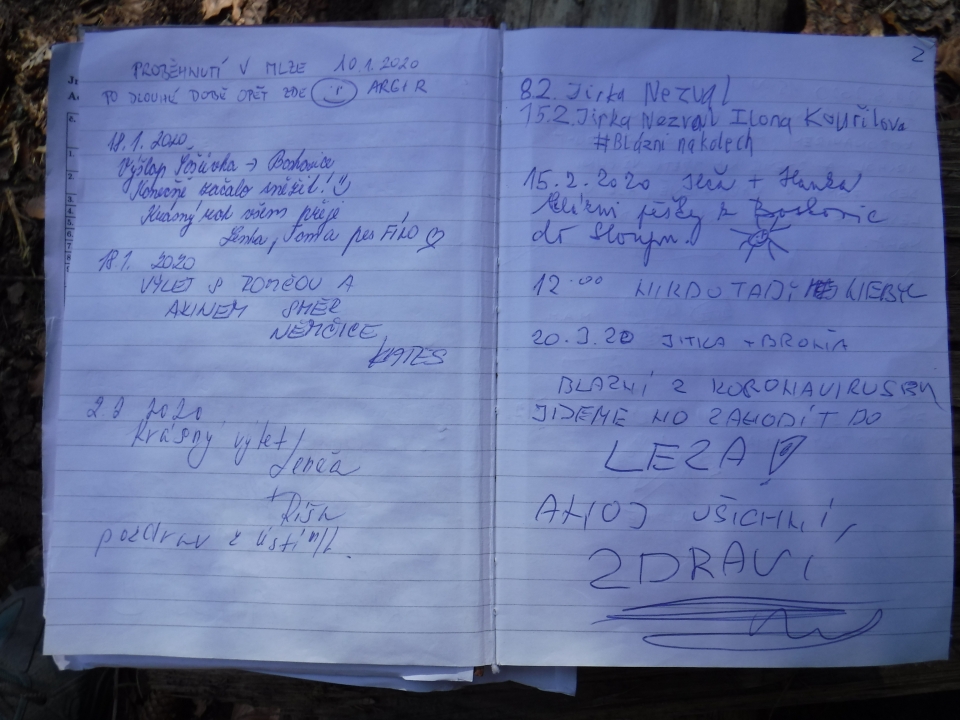 PROBĚHNUTÍ V MLZE 10.1.2020
PO DLOUHÉ DOBĚ OPĚT ZDE ARGI R
18.1.2020
Výšlap → Boskovice
Konečně začalo sněžit!
Krásný rok všem přeje
Lenka, Toma pes FÍLO
18.1. 2020
VÝLET S TOMČOU A
AKINEM SMĚR
NĚMČICE
2.2 2020
Krásný výlet
Lenča
+
Ríša
pozdrav z Ústí n/L.
2
8.2. Jirka Nezval
15.2. Jirka Nezval Ilona Kouřilova
#Blázni na kolech
15.2.2020 + Hanka
Blázni pěšky z Boskovic
do Sloupu.
12.00 NIKDO TADY NEBYL
20.3.20 JITKA + BROŇA
BLÁZNÍ Z KORONAVIRUSEM
JDEME HO ZAHODIT DO
LEZA
AHOJ VŠICHNI,
ZDRAVÍ